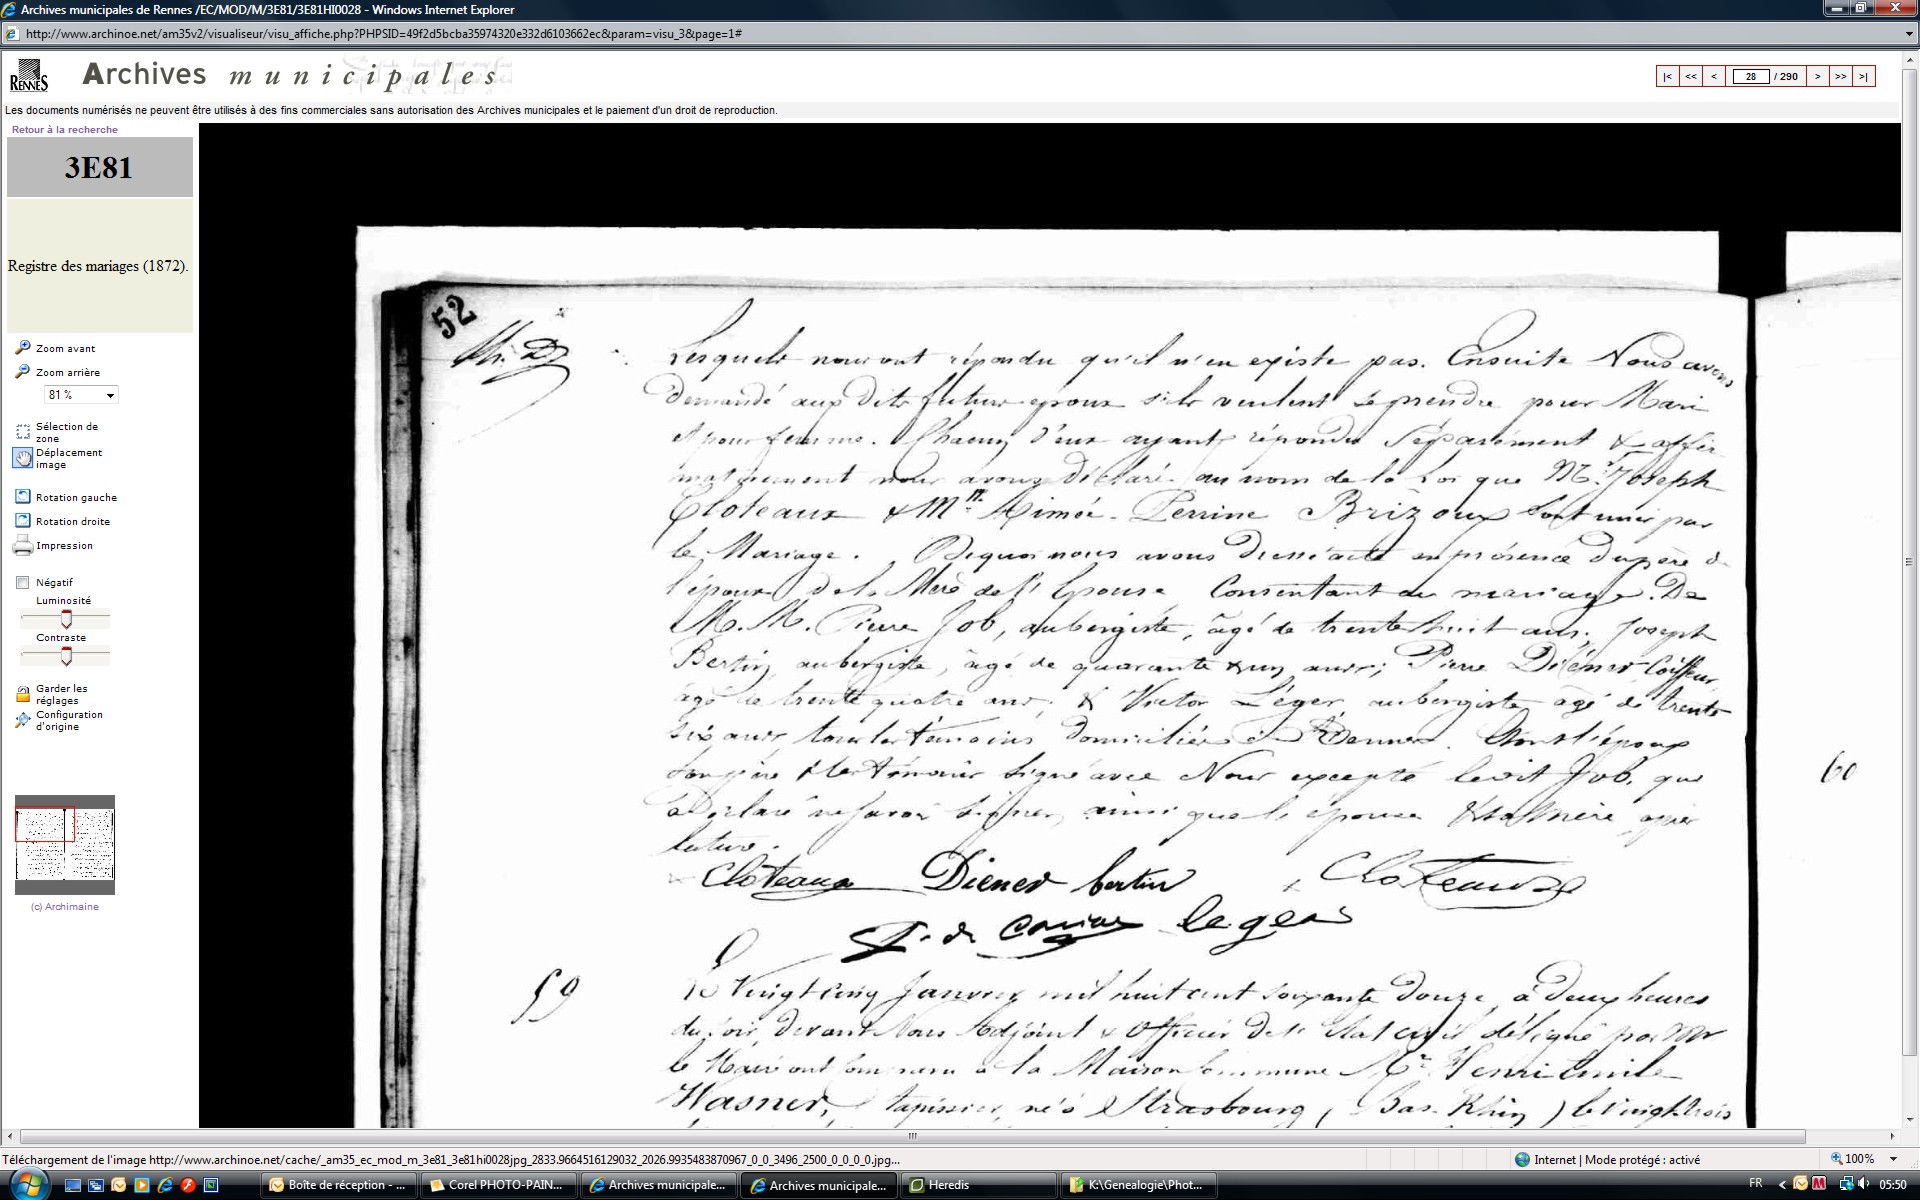 Archives municipales de Rennes /EC/MOD/M/3E81/3E81HI0028 - Windows Internet Explorer
http://www.archinoe.net/am35v2/visualiseur/visu_affiche.php?PHPSID=49f2d5bcba35974320e332d6103662ec&param=visu_3&page=1#
RENNES Archives municipales
|< << < 28 / 290 > >> >|
Les documents numérisés ne peuvent être utilisés à des fins commerciales sans autorisation des Archives municipales et le paiement d'un droit de reproduction.
Retour à la recherche
3E81
Registre des mariages (1872).
Zoom avant
Zoom arrière
81 %
Sélection de
zone
Déplacement
image
Rotation gauche
Rotation droite
Impression
Négatif
Luminosité
Contraste
Garder les
réglages
Configuration
d'origine
(c) Archimaine
52
Lesquels nous ont répondu qu'il n'en existe pas. Ensuite Nous avons
demandé aux dits futurs époux s'ils veulent se prendre pour Mari
et pour femme. Chacun d'eux ayant répondu séparément & affir
mativement nous avons déclaré au nom de la Loi que Mr. Joseph
Cloteaux & Mlle Aimée-Perrine Brizoux sont unis par
le Mariage. De quoi nous avons dressé acte en présence du père de
l'époux, de la Mère de l'Epouse Consentant au mariage. De
M.M. Pierre Job, aubergiste, âgé de trente huit ans; Joseph
Bertin, aubergiste, âgé de quarante & un ans; Pierre Diéner, Coiffeur,
âgé de trente quatre ans; & Victor Léger, aubergiste âgé de trente
six ans, tous les témoins domiciliés à Rennes. Dont l'époux
son père & les témoins signé avec Nous excepté ledit Job, qui
a déclaré ne savoir signer, ainsi que l'épouse & sa Mère, après
lecture.
Cloteaux Diener bertin Cloteaux
leger
59
Le Vingt cinq Janvier mil huit cent soixante douze, à deux heures
du soir, devant Nous Adjoint & Officier de l'Etat civil délégué par Mr
le Maire ont comparu à la Maison Commune Mr Henri Emile
Hasner, tapissier, né à Strasbourg (Bas-Rhin) le vingt trois
60
Téléchargement de l'image http://www.archinoe.net/cache/_am35_ec_mod_m_3e81_3e81hi0028jpg_2833.9664516129032_2026.9935483870967_0_0_3496_2500_0_0_0_0.jpg...
Internet | Mode protégé : activé
100%
Boîte de réception - ...
Corel PHOTO-PAIN...
Archives municipale...
Archives municipale...
Heredis
K:\Genealogie\Phot...
FR
05:50